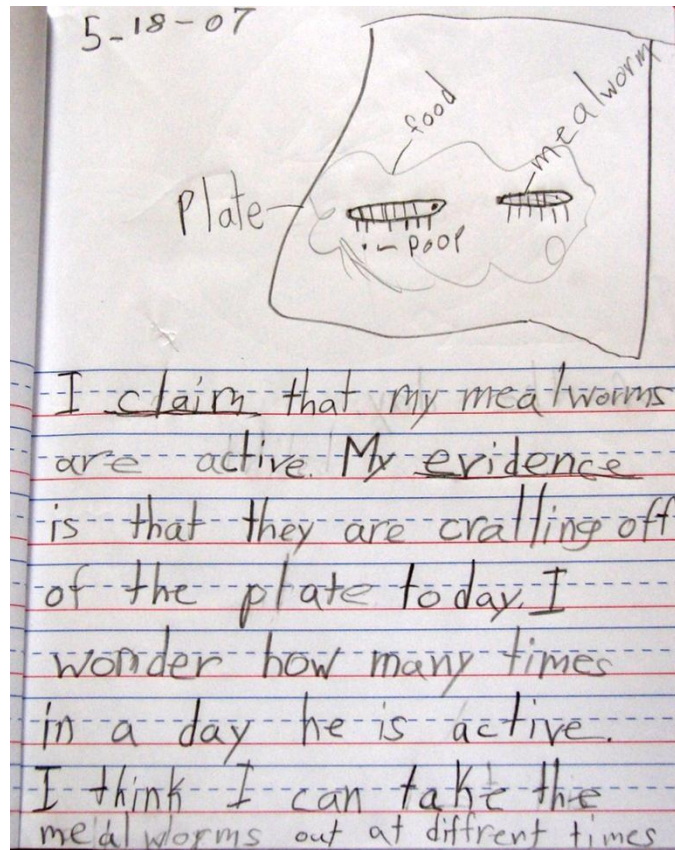 5-18-07
food
mealworm
Plate
poop
I claim that my mealworms
are active. My evidence
is that they are cralling off
of the plate today. I
wonder how many times
in a day he is active.
I think I can take the
mealworms out at diffrent times